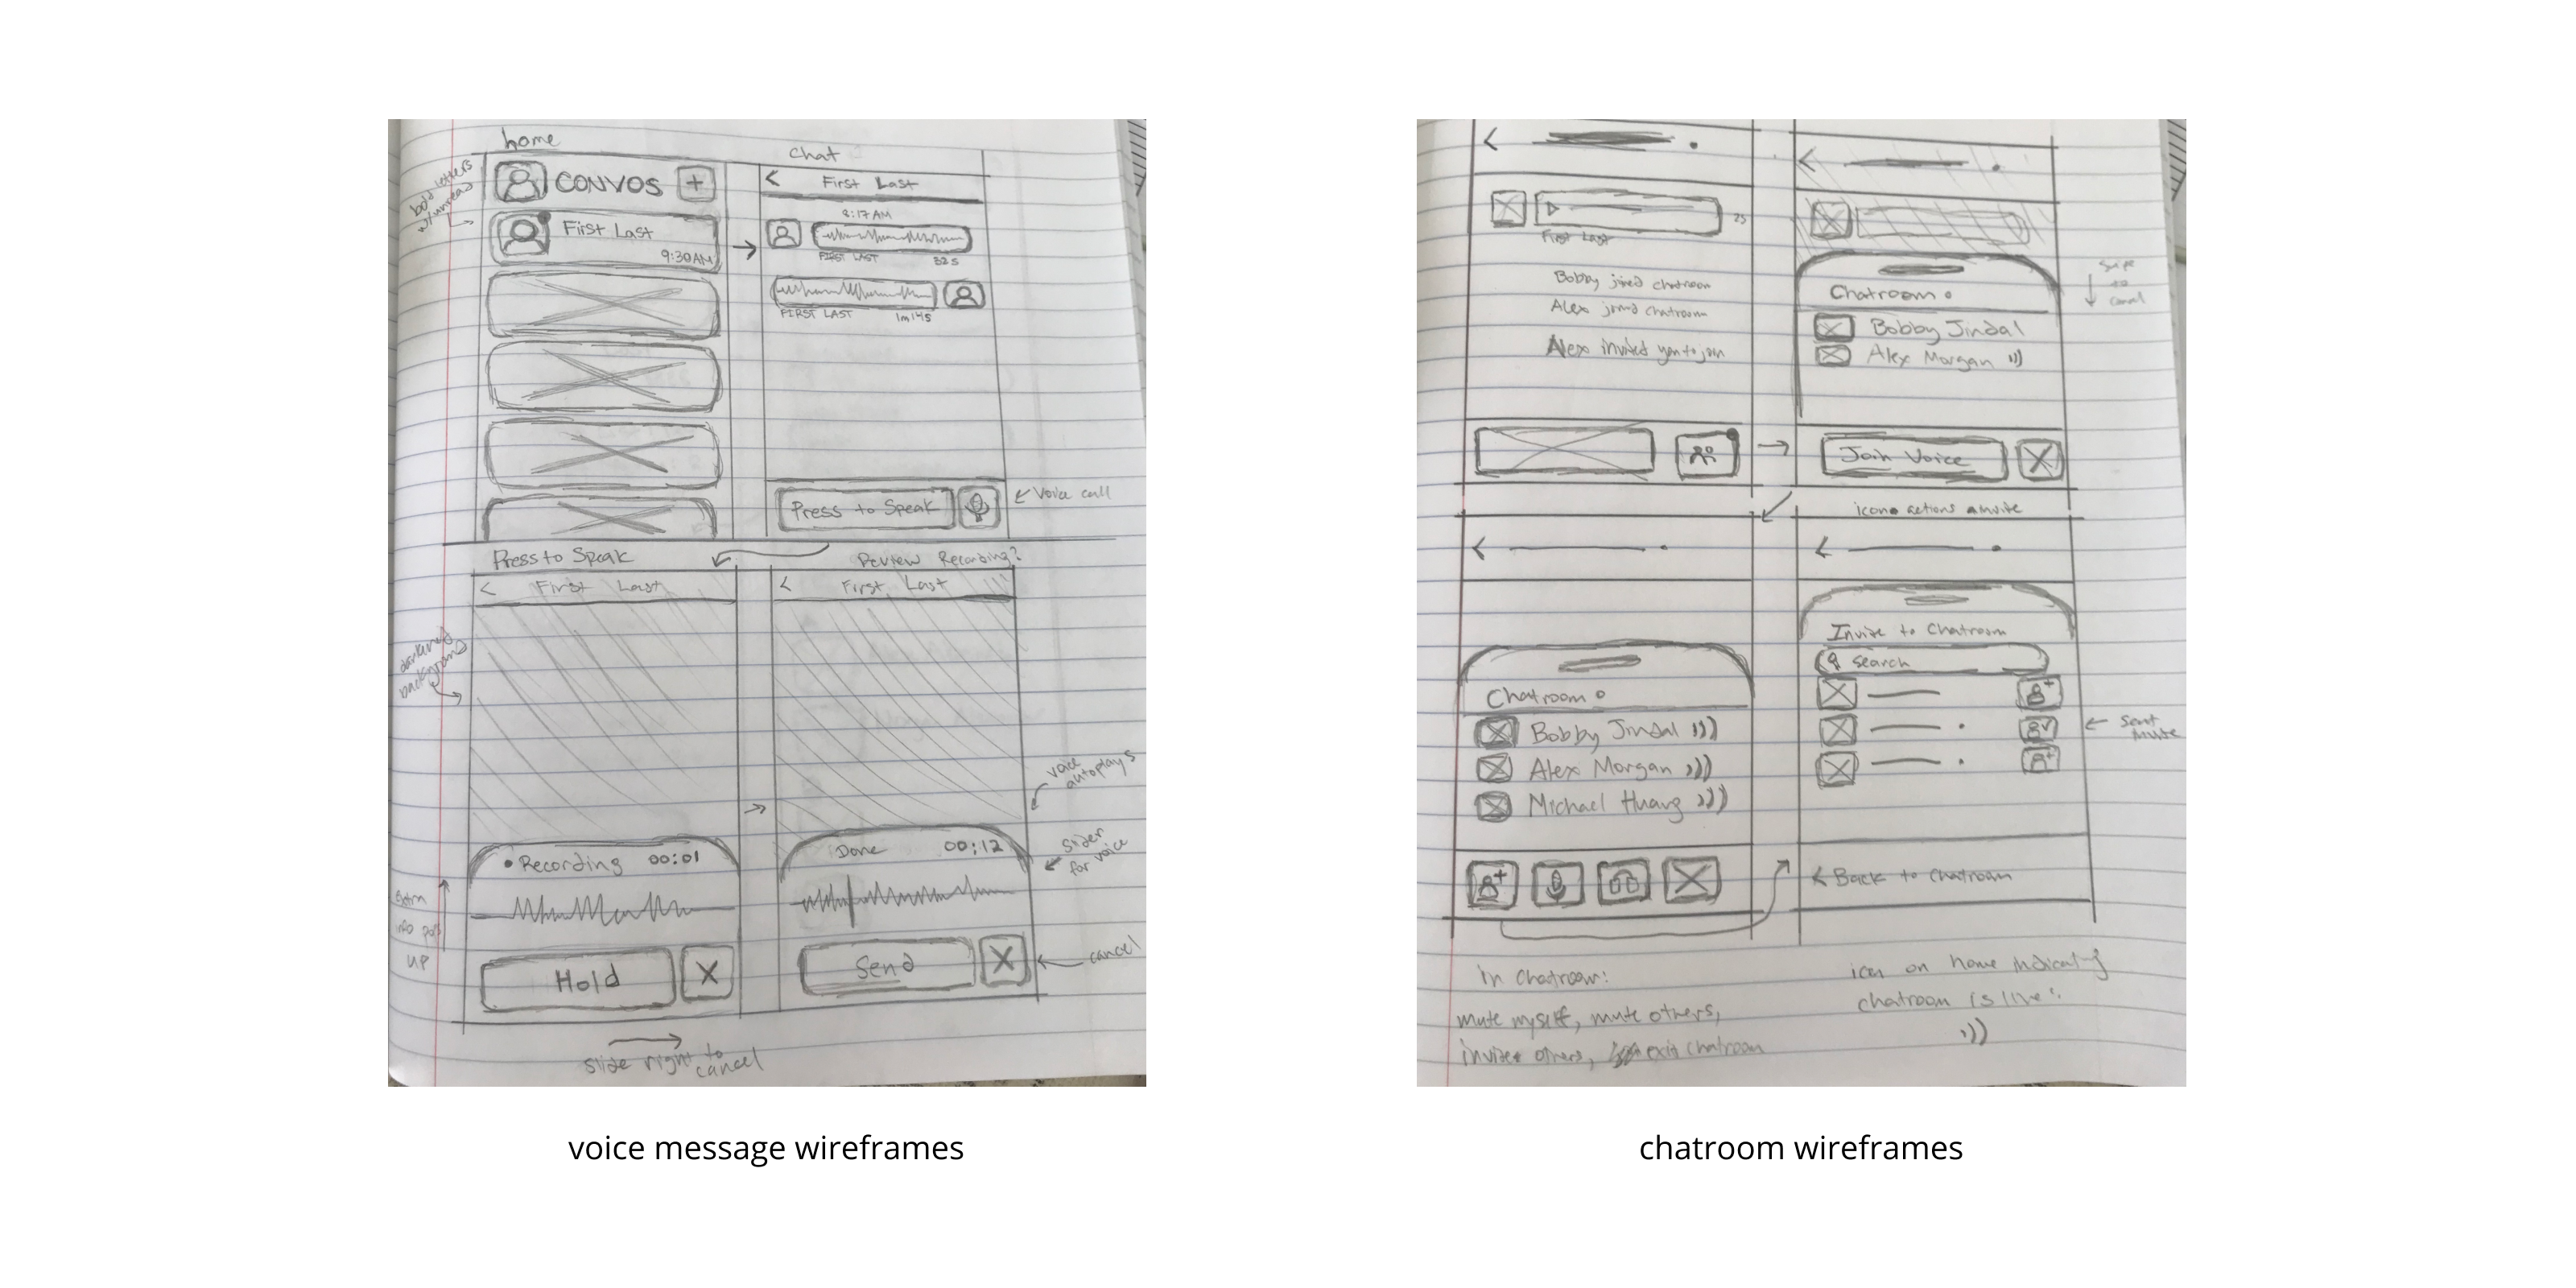 home
bold letters
w/unread
CONVOS +
First Last
9:30AM
chat
< First Last
8:17AM
FIRST LAST 32s
FIRST LAST 1m14s
Press to Speak
voice call
Press to Speak
< First Last
darkened
background
• Recording 00:01
info pops
up
Hold X
slide right to
cancel
Review Recording?
< First Last
voice
autoplays
Done 00:12
slider
for voice
Send X
cancel
voice message wireframes
<
First Last
2s
Bobby joined chatroom
Alex joined chatroom
Alex invited you to join
<
Chatroom
Bobby Jindal
Alex Morgan
to
cancel
Join Voice X
icon actions
<
Chatroom
Bobby Jindal
Alex Morgan
Michael Huang
<
Invite to Chatroom
search
sent
< Back to chatroom
in chatroom:
mute myself, mute others,
invite others, exit chatroom
icon on home indicating
chatroom is live:
chatroom wireframes